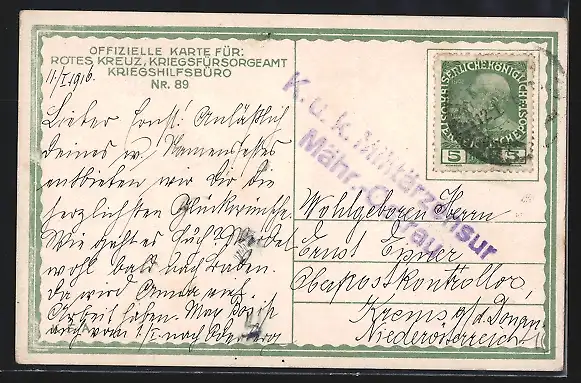 OFFIZIELLE KARTE FÜR:
ROTES KREUZ, KRIEGSFÜRSORGEAMT
KRIEGSHILFSBÜRO
NR. 89
11/I 1916.
Lieber Ernst! Anläßlich
deines w. Namensfestes
entbieten wir dir die
herzlichsten Glückwünsche.
Wie geht es Euch?
wohl bald nach Baden.
da wird Anna viel
Arbeit haben. Max
auch vom 1/I nach Oderberg
KAISERLICHE KÖNIGLICHE
5 5
K. u. k. Militärzensur
Mähr. Ostrau
Wohlgeboren Herrn
Ernst Exner
Oberpostkontrollor
Krems a/d. Donau
Niederösterreich